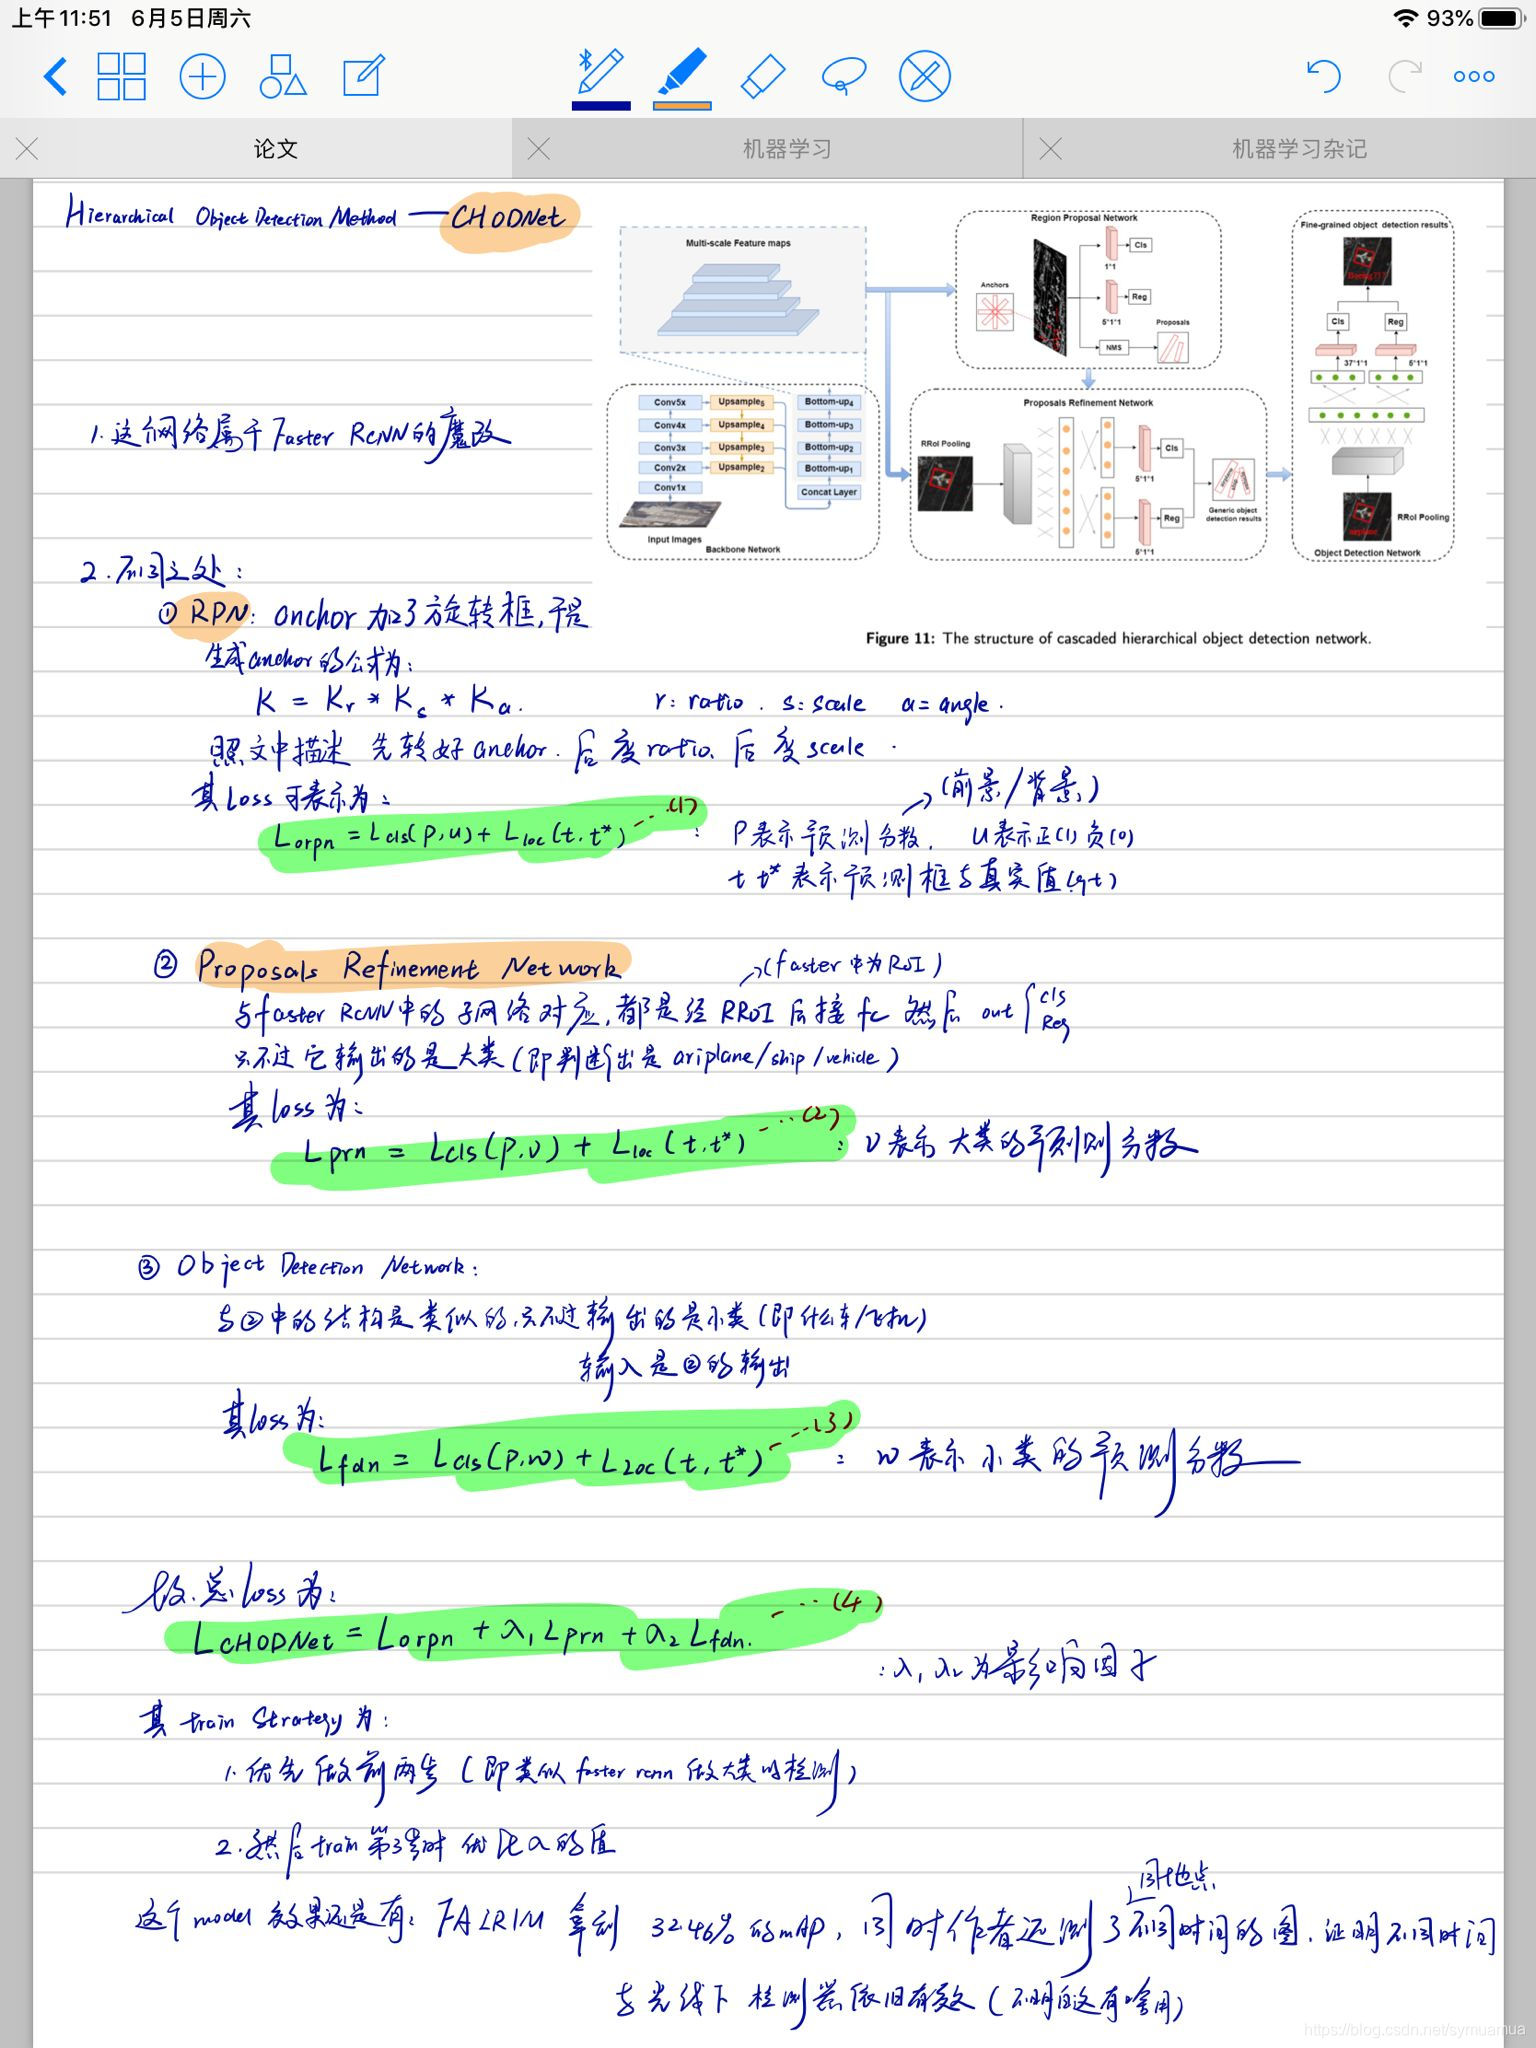 上午11:51 6月5日周六
93%
论文
机器学习
机器学习杂记
Hierarchical Object Detection Method — CHODNet
Multi-scale Feature maps
Region Proposal Network
Anchors
Cls
1*1
Reg
5*1*1
NMS
Proposals
Fine-grained object detection results
Boeing737
Cls
Reg
37*1*1
5*1*1
RRoI Pooling
airplane
Object Detection Network
Conv5x
Upsample5
Bottom-up4
Conv4x
Upsample4
Bottom-up3
Conv3x
Upsample3
Bottom-up2
Conv2x
Upsample2
Bottom-up1
Conv1x
Concat Layer
Input Images
Backbone Network
Proposals Refinement Network
RRoI Pooling
Cls
5*1*1
Reg
5*1*1
Generic object
detection results
Figure 11: The structure of cascaded hierarchical object detection network.
1. 这个网络属于Faster RCNN的魔改
2. 不同之处:
① RPN: anchor 加了旋转框,于是
生成anchor的公式为:
K = Kr * Ks * Ka. r: ratio. s: scale a= angle.
照文中描述 先转好anchor. 后变ratio、后变scale.
其Loss可表示为:
Lorpn = Lcls(p,u) + Lloc(t.t*) ---(1)
: P表示预测分数. u表示正(1)负(0)
→(前景/背景)
t t*表示预测框与真实值(gt)
② Proposals Refinement Network
→(faster中为RoI)
与faster RCNN中的子网络对应,都是经RRoI后接fc 然后out { cls
Reg
只不过它输出的是大类(即判断出是ariplane/ship/vehicle)
其loss为:
Lprn = Lcls(p.v) + Lloc(t.t*) ---(2) : v表示大类的预测分数
③ Object Detection Network:
与②中的结构是类似的.只不过输出的是小类(即什么车/飞机)
输入是②的输出
其loss为:
Lfdn = Lcls(p.w) + Lloc(t,t*) ---(3) : w表示小类的预测分数
故.总loss为:
LCHODNet = Lorpn + λ1 Lprn + λ2 Lfdn. ---(4)
: λ1 λ2为影响因子
其train Strategy为:
1. 优先做前两步(即类似faster rcnn做大类的检测)
2. 然后train第3步时优化λ的值
同地点
这个model效果还是有: FAIR1M 拿到 32.46%的mAP, 同时作者还测了不同时间的图. 证明不同时间
与光线下检测器依旧有效(不明白这有啥用)
https://blog.csdn.net/symuamua